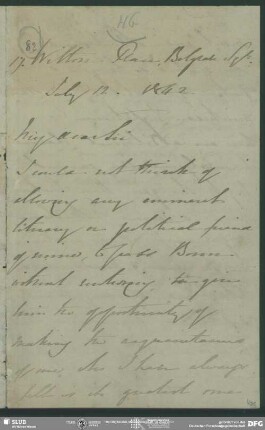 46
82
17 Wilton Place, Belgrave Sqr.
July 12. 1862
My dear Sir
I would not think of
allowing any eminent
literary or political friend
of mine, to pass Bonn
without endeavouring to give
him the opportunity of
making the acquaintance
of one who I have always
felt as the greatest man
SLUB
DFG